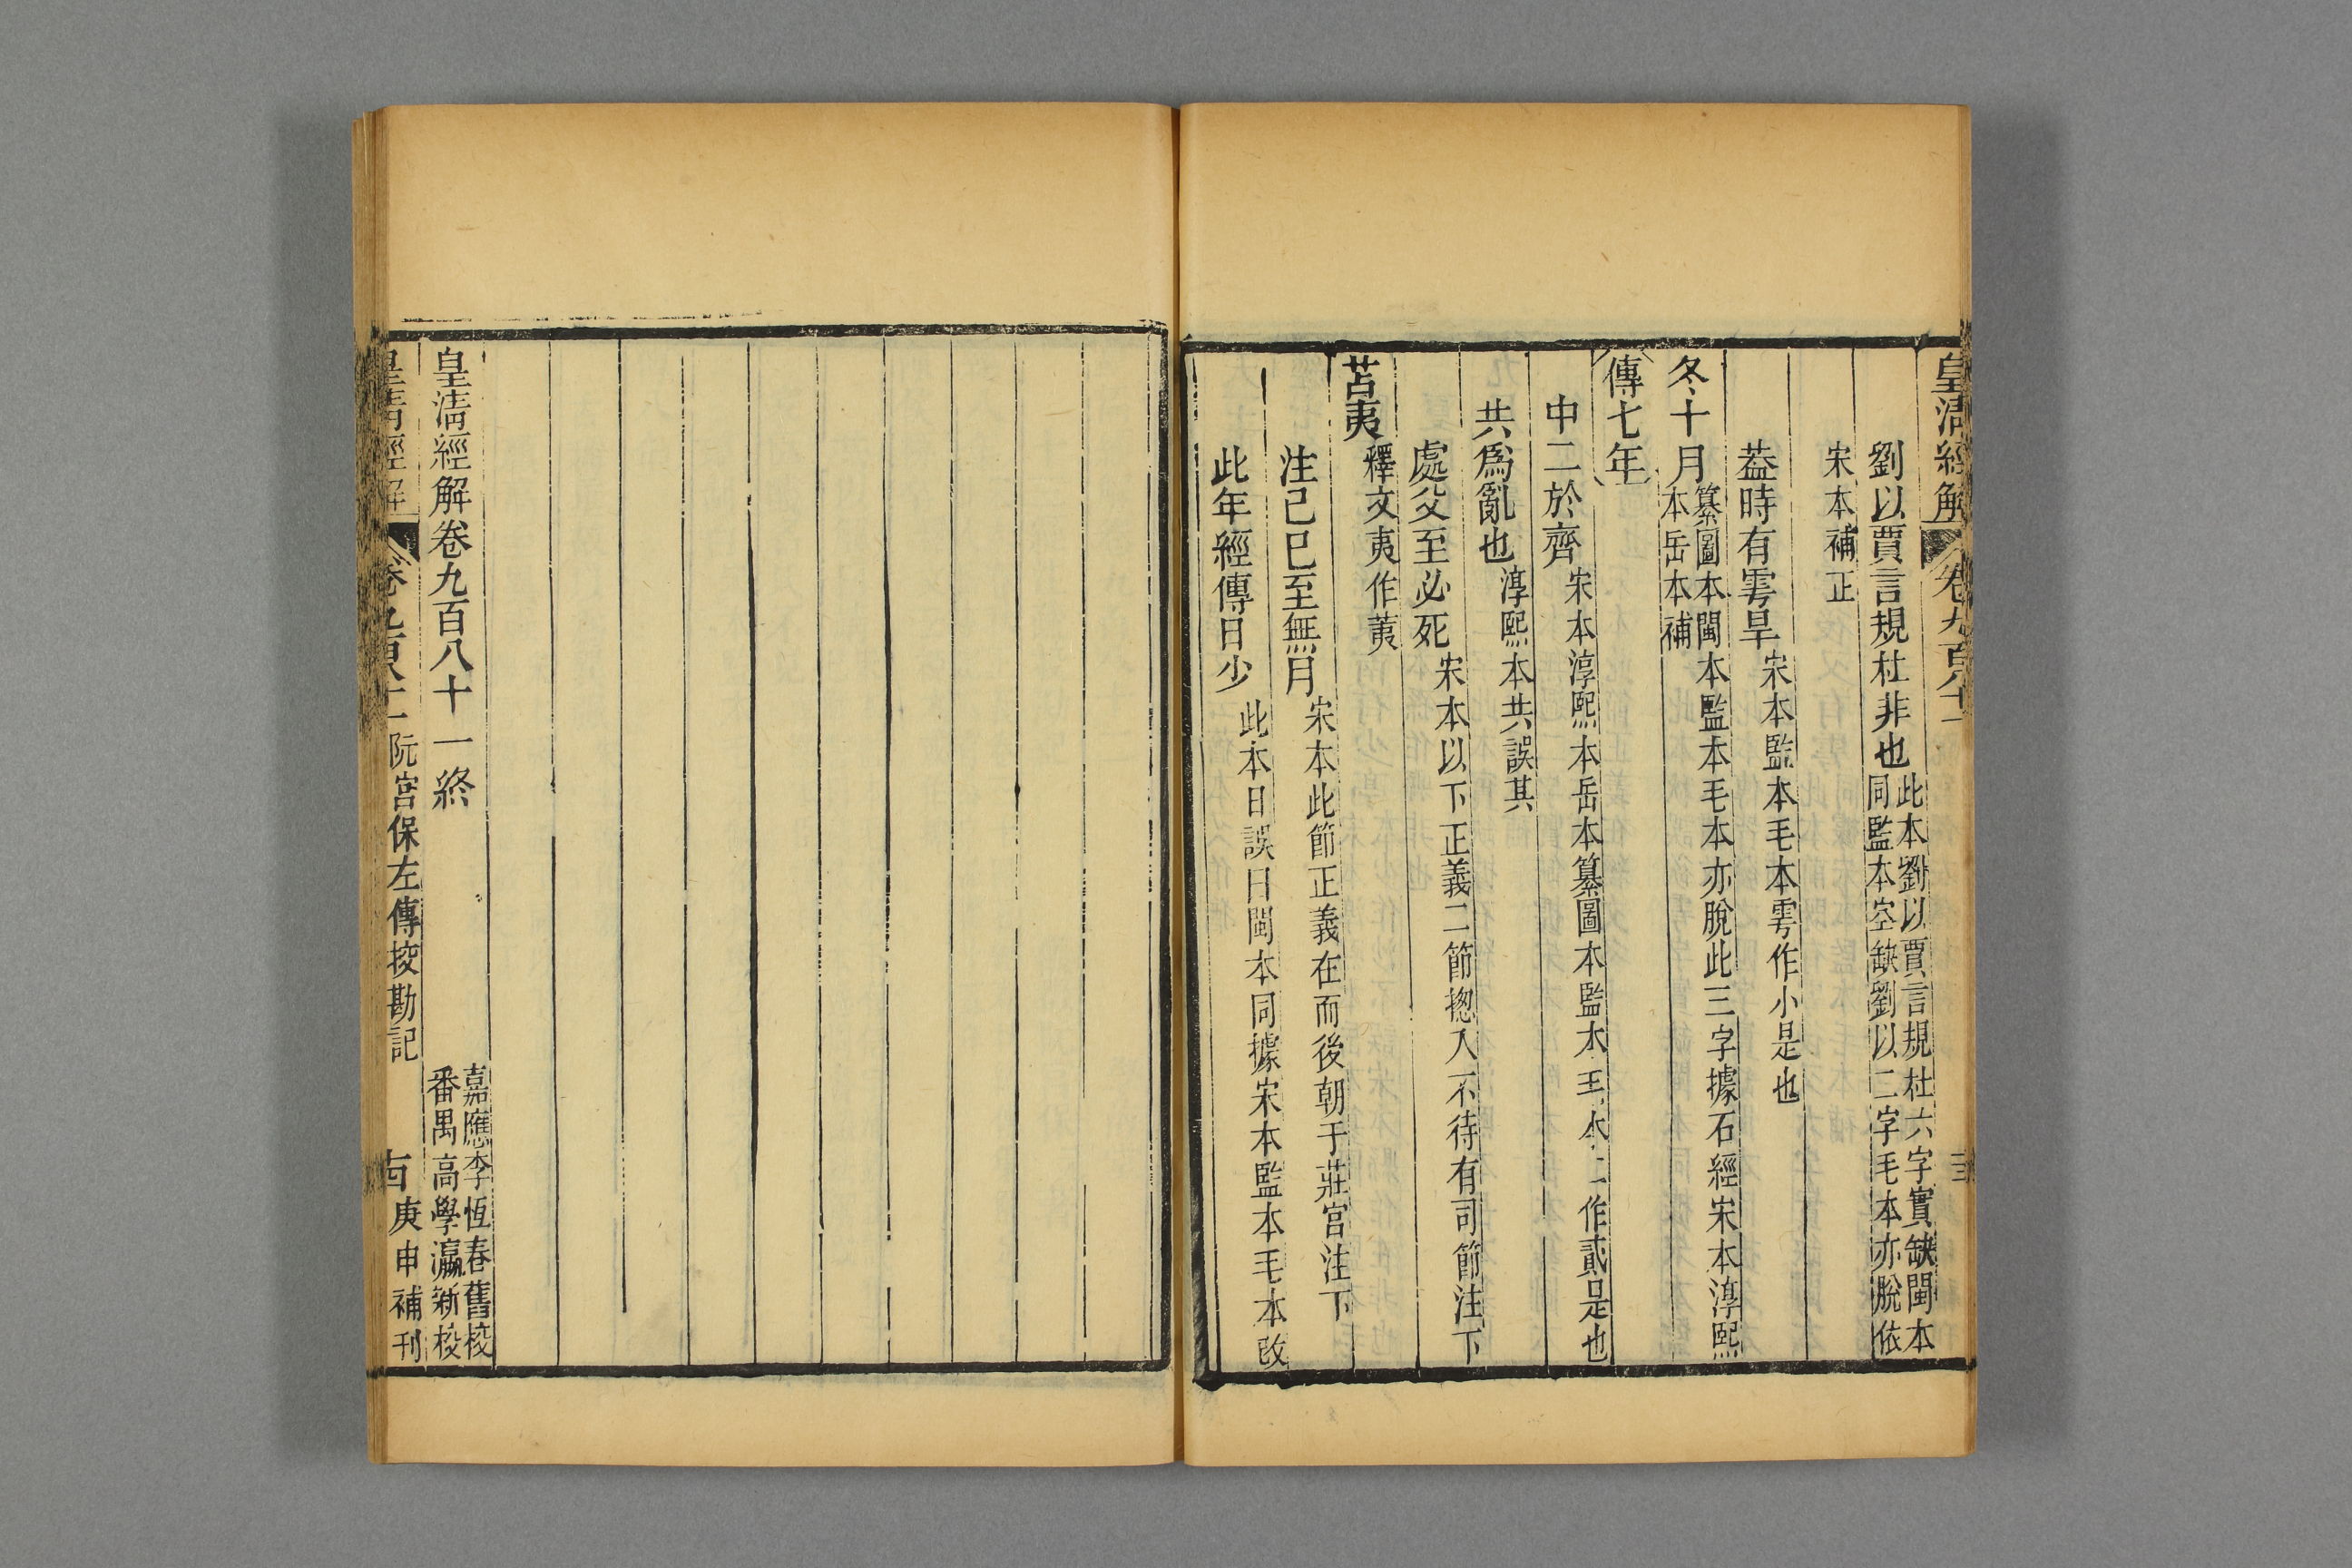 皇清經解 卷九百八十一
劉以賈言規杜非也 此本劉以賈言規杜六字實缺閩本
同監本空缺劉以二字毛本亦脫依
宋本補正
葢時有雩旱 宋本監本毛本雩作小是也
冬十月 纂圖本閩本監本毛本亦脫此三字據石經宋本淳熙
本岳本補
傳七年
中二於齊 宋本淳熙本岳本纂圖本監本毛本二作貳是也
共爲亂也 淳熙本共誤其
處父至必死 宋本以下正義二節揔入不待有司節注下
苫夷 釋文夷作荑
注己巳至無月 宋本此節正義在而後朝于莊宮注下
此年經傳日少 此本日誤曰閩本同據宋本監本毛本改
皇清經解卷九百八十一終
嘉應李恆春舊校
番禺高學瀛新校
皇清經解 卷九百八十一 阮宮保左傳挍勘記 古 庚申補刊